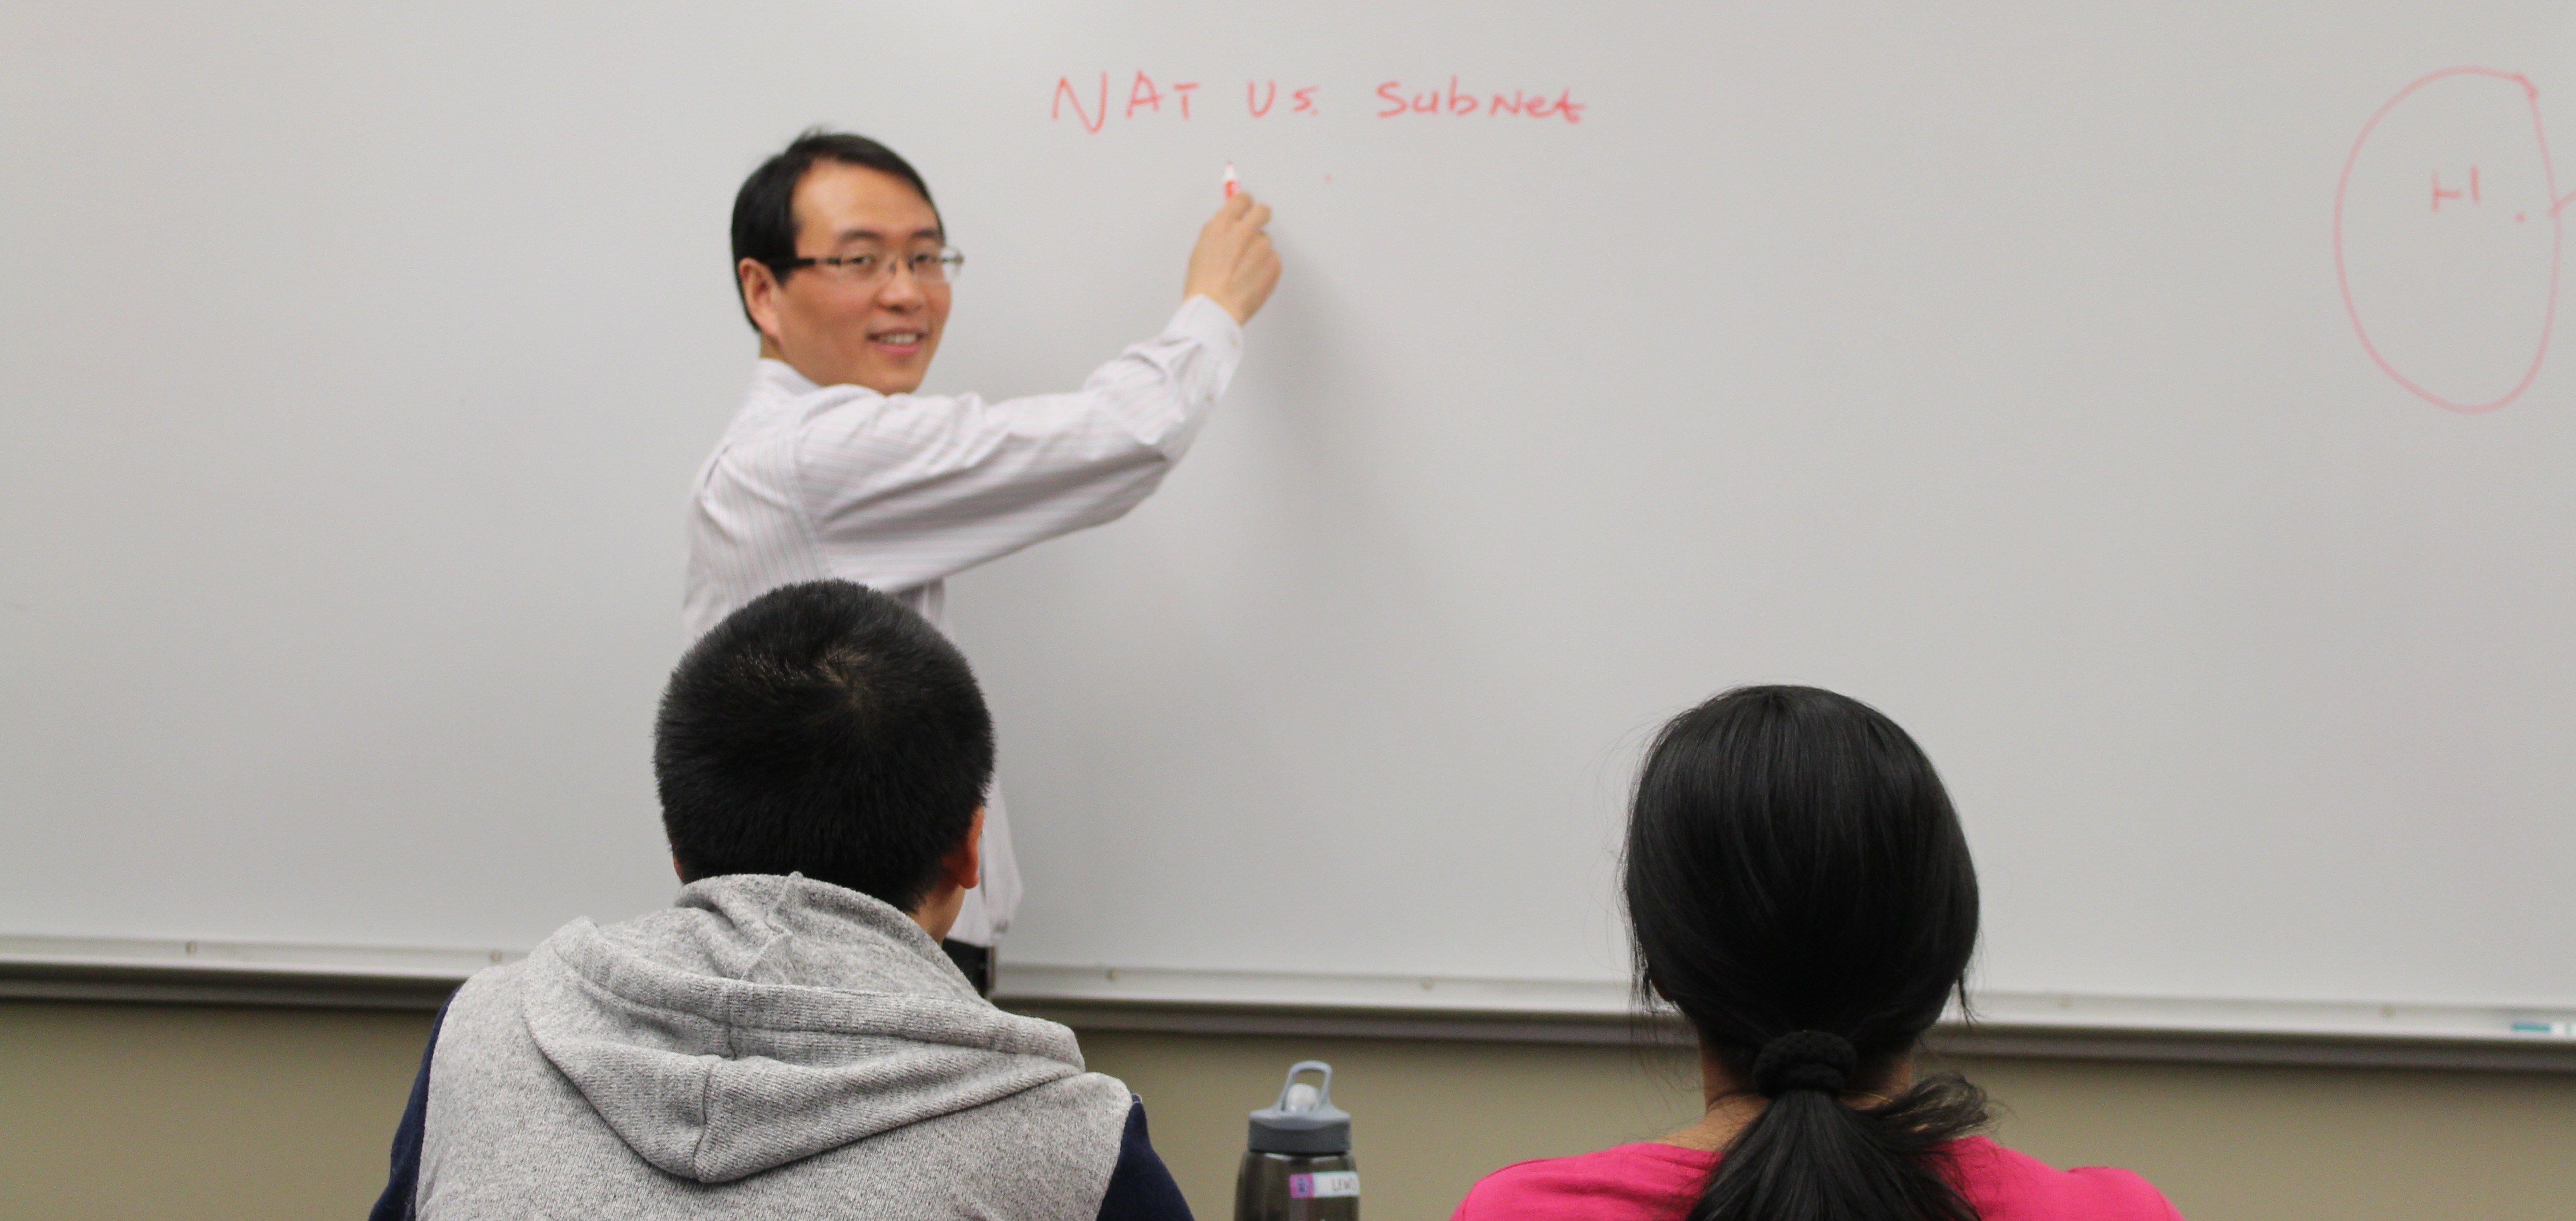 NAT Vs. SubNet
H